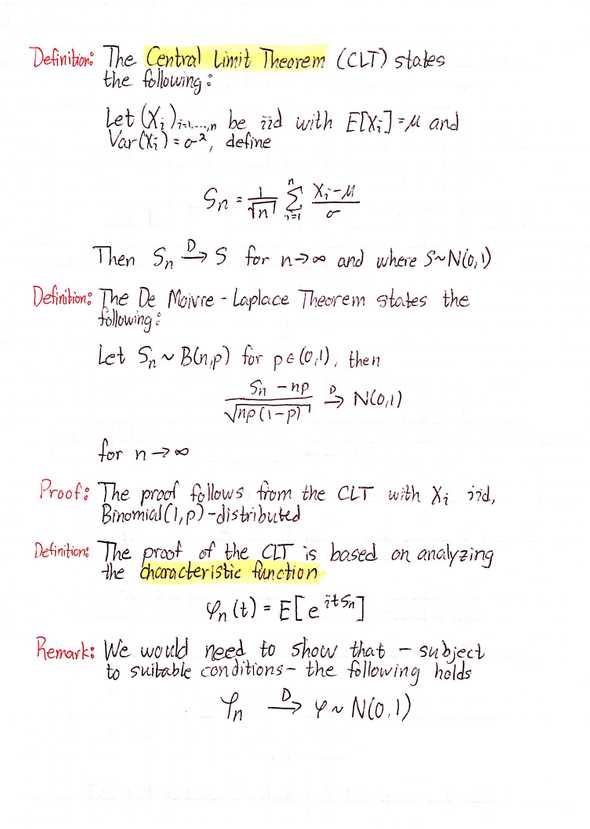 Definition: The Central Limit Theorem (CLT) states
the following:
Let (Xᵢ)ᵢ₌₁,...,ₙ be iid with E[Xᵢ] = μ and
Var(Xᵢ) = σ², define
Sₙ = 1/√n ∑ᵢ₌₁ⁿ (Xᵢ-μ)/σ
Then Sₙ →ᴰ S for n→∞ and where S~N(0,1)
Definition: The De Moivre - Laplace Theorem states the
following:
Let Sₙ ~ B(n,p) for p∈(0,1), then
(Sₙ - np)/√(np(1-p)) →ᴰ N(0,1)
for n→∞
Proof: The proof follows from the CLT with Xᵢ iid,
Binomial(1,p)-distributed
Definition: The proof of the CLT is based on analyzing
the characteristic function
φₙ(t) = E[e^{itSₙ}]
Remark: We would need to show that - subject
to suitable conditions - the following holds
φₙ →ᴰ φ ~ N(0,1)